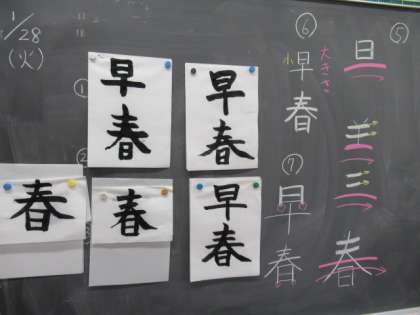 1/28
(火)
①
早春
早春
②
春
春
早春
⑥
小早春
大きさ
⑦
早春
⑤
旦
三
春